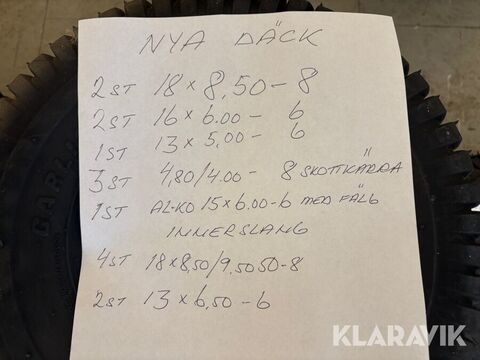 NYA DÄCK
2ST 18 x 8,50 - 8
2ST 16 x 6.00 - 6
1ST 13 x 5,00 - 6
3ST 4,80/4.00 - 8 SKOTTKÄRRA
1ST AL-KO 15 x 6.00-6 MED FÄLG
INNERSLANG
4ST 18 x 8,50/9,50 50-8
2ST 13 x 6,50 - 6
KLARAVIK